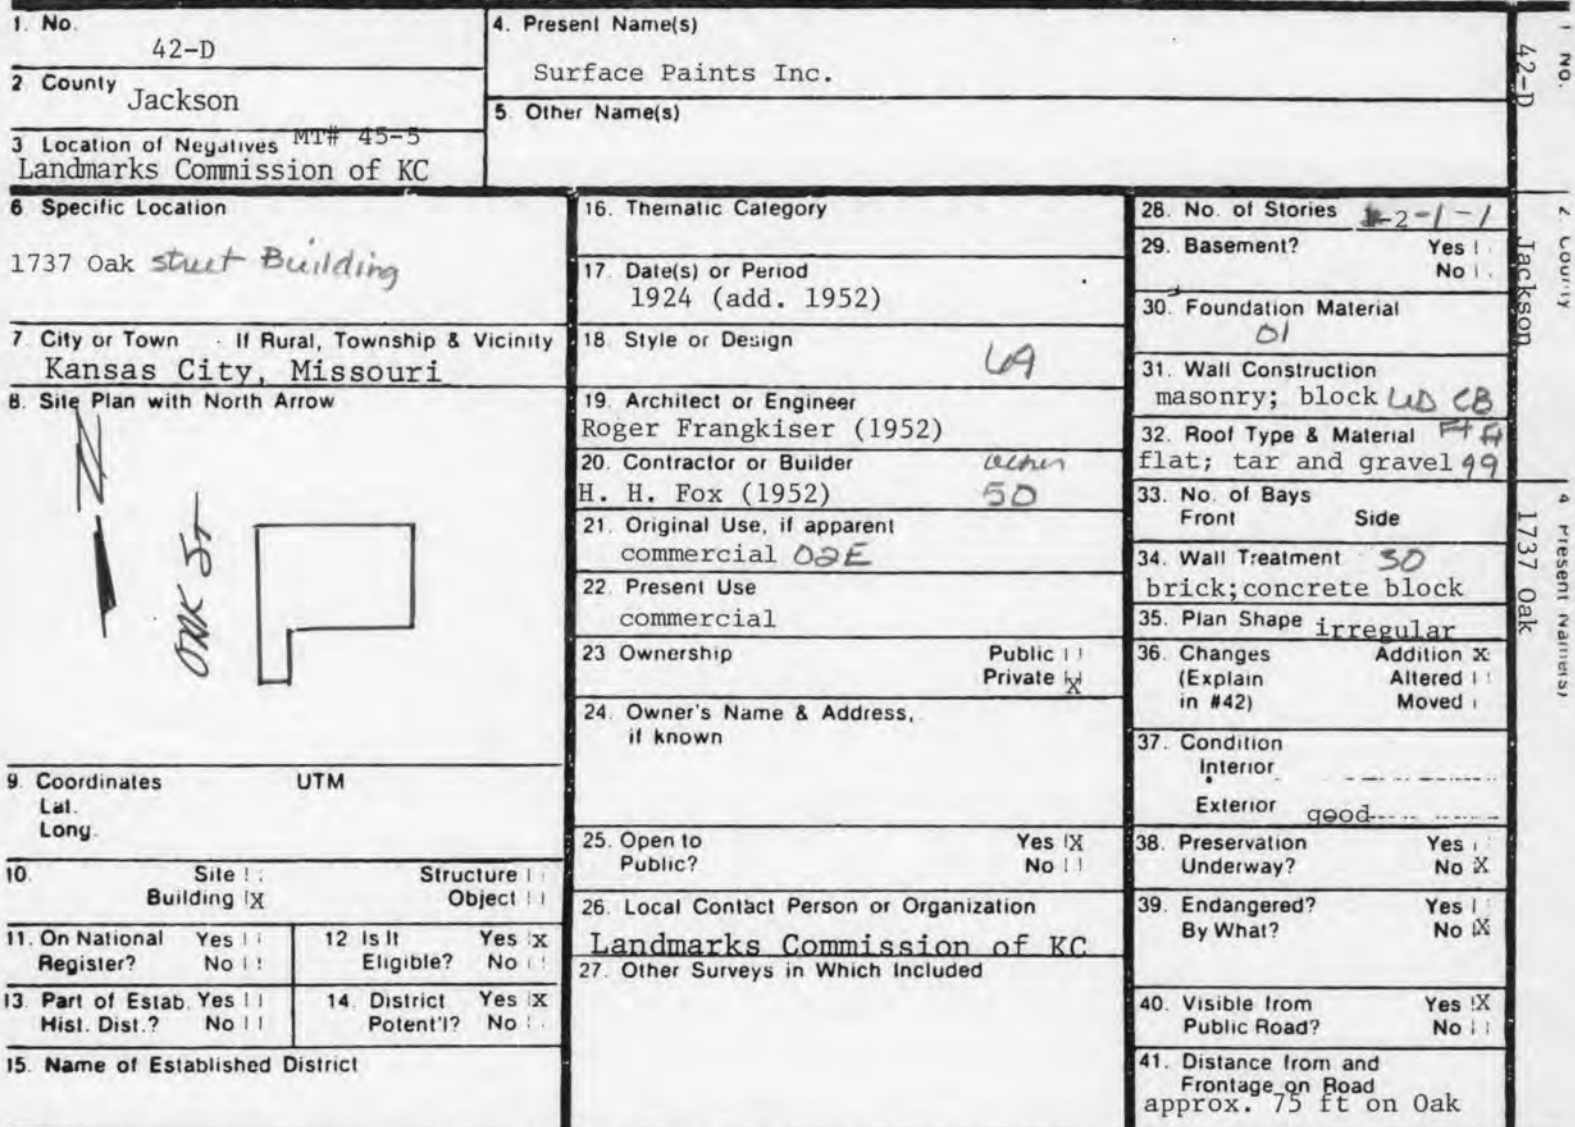 1. No.
42-D
2 County Jackson
3 Location of Negatives MT# 45-5
Landmarks Commission of KC
4. Present Name(s)
Surface Paints Inc.
5 Other Name(s)
6 Specific Location
1737 Oak street Building
7 City or Town If Rural, Township & Vicinity
Kansas City, Missouri
8. Site Plan with North Arrow
N
OAK ST
9. Coordinates UTM
Lat.
Long.
10. Site Structure
Building X Object
11. On National Yes
Register? No
12 Is It Yes X
Eligible? No
13. Part of Estab. Yes
Hist. Dist.? No
14. District Yes X
Potent'l? No
15. Name of Established District
16. Thematic Category
17. Date(s) or Period
1924 (add. 1952)
18. Style or Design
19. Architect or Engineer
Roger Frangkiser (1952)
20. Contractor or Builder other
H. H. Fox (1952) 50
21. Original Use, if apparent
commercial 02E
22. Present Use
commercial
23 Ownership Public
Private X
24. Owner's Name & Address,
if known
25. Open to Yes X
Public? No
26. Local Contact Person or Organization
Landmarks Commission of KC
27. Other Surveys in Which Included
28. No. of Stories 2-1-1
29. Basement? Yes
No
30. Foundation Material
01
31. Wall Construction
masonry; block CB
32. Roof Type & Material
flat; tar and gravel 99
33. No. of Bays
Front Side
34. Wall Treatment 30
brick;concrete block
35. Plan Shape irregular
36. Changes Addition X
(Explain Altered
in #42) Moved
37. Condition
Interior
Exterior good
38. Preservation Yes
Underway? No X
39. Endangered? Yes
By What? No X
40. Visible from Yes X
Public Road? No
41. Distance from and
Frontage on Road
approx. 75 ft on Oak
1 No.
42-D
2. County
Jackson
4 Present Name(s)
1737 Oak